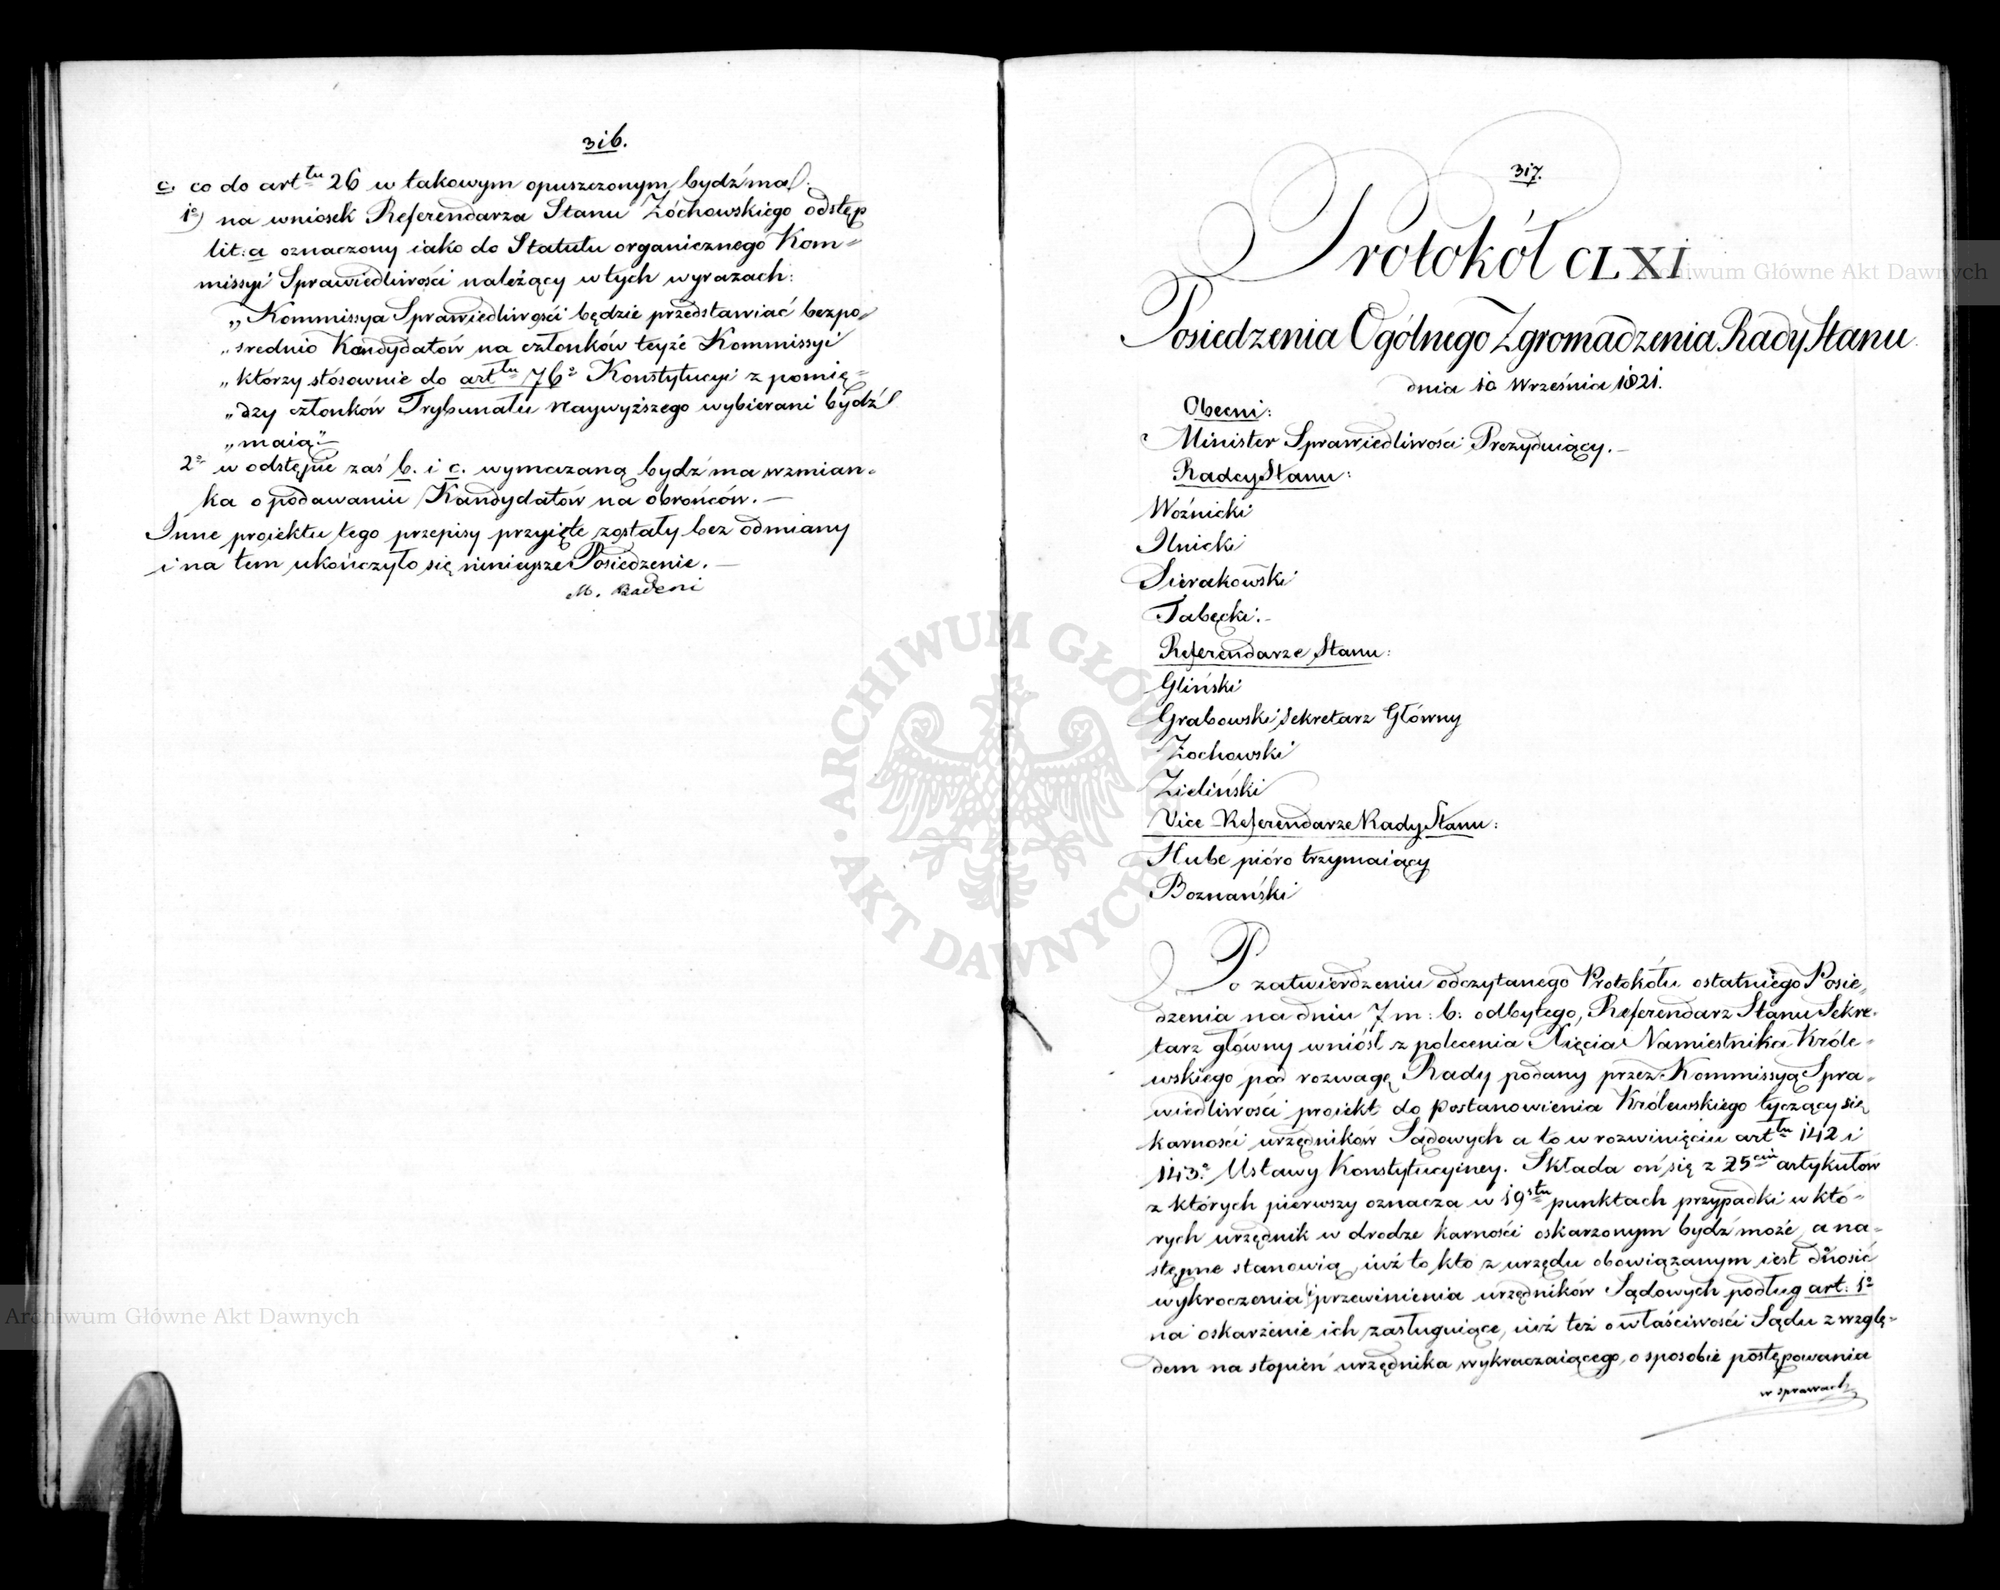 316.
c. co do art^tu 26 w takowym opuszczonym bydź ma:
1°) na wniosek Referendarza Stanu Żóchowskiego odstęp
lit: a oznaczony iako do Statutu organicznego Kom=
missyi Sprawiedliwości należący w tych wyrazach:
„Kommissya Sprawiedliwości będzie przedstawiać bezpo=
„srednio Kandydatów na członków teyże Kommissyi
„ktorzy stósownie do art^tu 76° Konstytucyi z pomię=
„dzy członków Trybunału Naywyższego wybierani bydź
„maią"—
2° w odstępie zaś b. i c. wymazaną bydź ma wzmian=
ka o podawaniu Kandydatów na obrońców. —
Inne proiektu tego przepisy przyięte zostały bez odmiany
i na tem ukończyło się ninieysze Posiedzenie. —
M. Badeni
317.
Protokół CLXI
Posiedzenia Ogólnego Zgromadzenia Rady Stanu
dnia 10 Września 1821.
Obecni:
Minister Sprawiedliwości Prezyduiący. —
Radcy Stanu:
Woźnicki
Ilnicki
Sierakowski
Tabęcki. —
Referendarze Stanu:
Gliński
Grabowski Sekretarz Główny
Żochowski
Zieliński
Vice-Referendarze Rady Stanu:
Hube pióro trzymaiący
Boznański
Po zatwierdzeniu odczytanego Protokółu ostatniego Posie=
dzenia na dniu 7 m: b: odbytego, Referendarz Stanu Sekre=
tarz główny wniósł z polecenia Xięcia Namiestnika Króle=
wskiego pod rozwagę Rady podany przez Kommissyą Spra=
wiedliwości proiekt do Postanowienia Królewskiego tyczący się
karności urzędników Sądowych a to w rozwinięciu art^tu 142 i
143° Ustawy Konstytucyiney. Składa on się z 25^ciu artykułów
z których pierwszy oznacza w 19^stu punktach przypadki w któ=
rych urzędnik w drodze karności oskarzonym bydź może, a na=
stępne stanowią, iuż to kto z urzędu obowiązanym iest dnosić
wykroczenia i przewinienia urzędników Sądowych podług art: 1°
na oskarżenie ich zasługuiące, iuż też o właściwości Sądu z wzglę=
dem na stopień urzędnika wykraczaiącego, o sposobie postępowania
w sprawach
Archiwum Główne Akt Dawnych
Archiwum Główne Akt Dawnych
ARCHIWUM GŁÓWNE AKT DAWNYCH